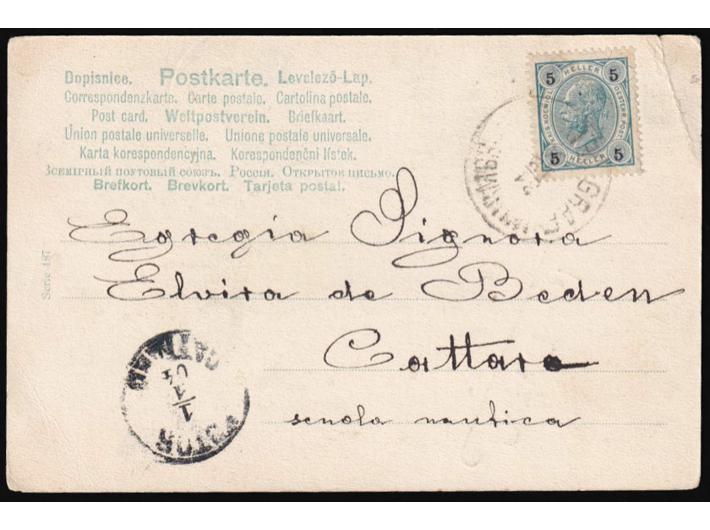 Dopisnice. Postkarte. Levelező-Lap.
Correspondenzkarte. Carte postale. Cartolina postale.
Post card. Weltpostverein. Briefkaart.
Union postale universelle. Unione postale universale.
Karta korespondencyjna. Korespondenční lístek.
Всемірный почтовый союзъ. Россія. Открытое письмо.
Brefkort. Brevkort. Tarjeta postal.
5 HELLER 5
5 HELLER 5
Egregia Signora
Elvira de Beden
Cattaro
scuola nautica
Serie 187
CATTARO
04
1/1
KOTOR